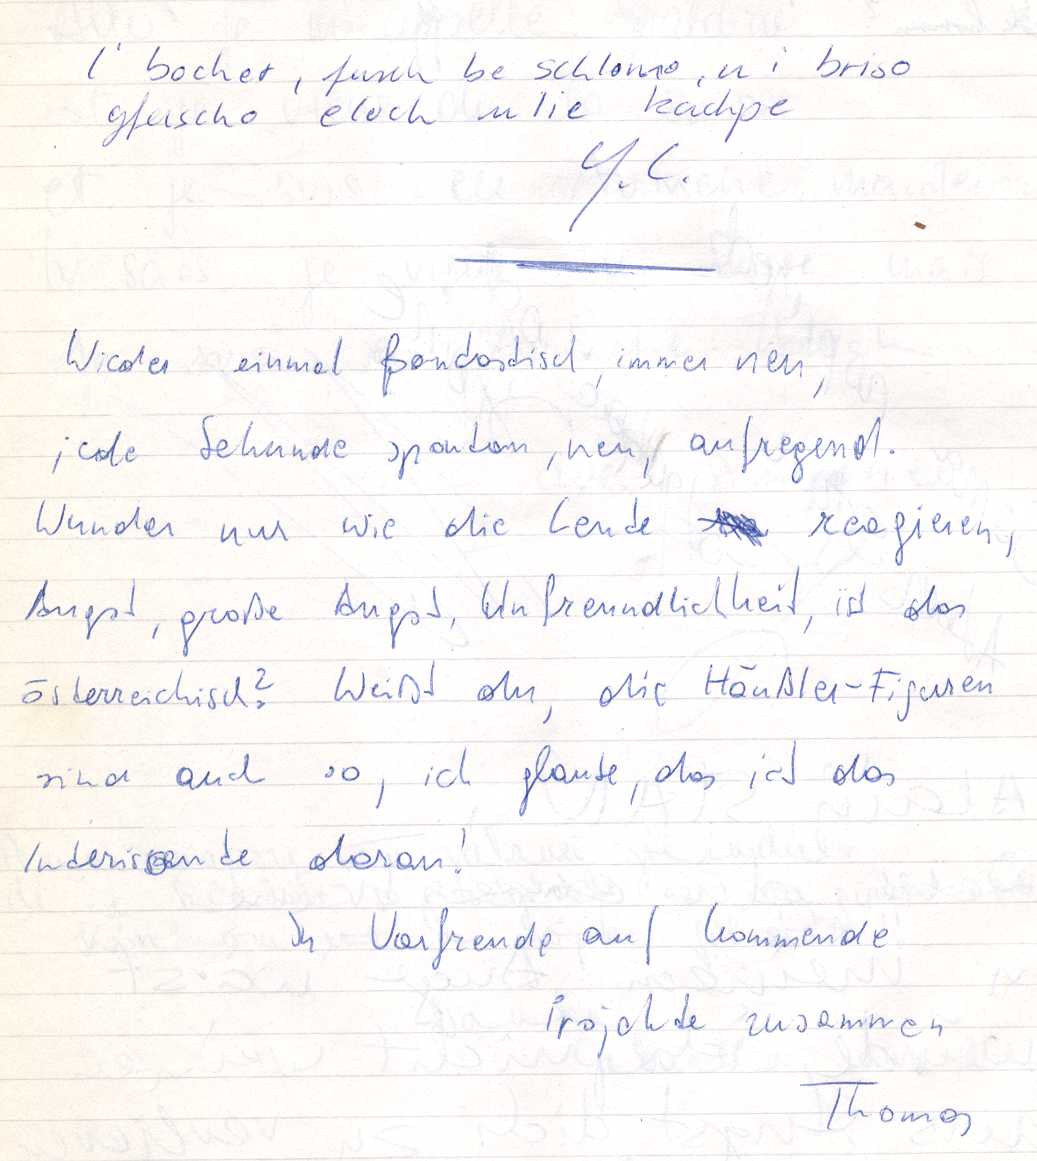 I bocher, fusch be schlomo, u i briso
gfascho eloch u lie kachpe
Y. C.
Wieder einmal fantastisch, immer neu,
jede Sekunde spontan, neu, aufregend.
Wunder nur wie die Leute reagieren,
Angst, große Angst, Unfreundlichkeit, ist das
österreichisch? Weißt du, die Häußler-Figuren
sind auch so, ich glaube, das ist das
Interissante daran!
In Vorfreude auf kommende
Projekte zusammen
Thomas